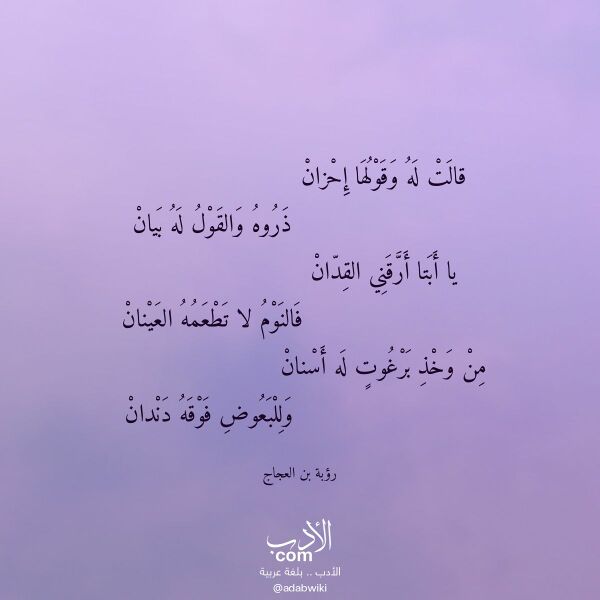 قالَتْ لَهُ وَقَوْلُهَا إِحْزانْ
ذَرُوهُ وَالقَوْلُ لَهُ بَيَانْ
يا أَبَتا أَرَّقَنِي القِدّانْ
فَالنَوْمُ لا تَطْعَمُهُ العَيْنانْ
مِنْ وَخْذِ بَرْغُوثٍ لَه أَسْنانْ
وَلِلْبَعُوضِ فَوْقَهُ دَنْدانْ
رؤبة بن العجاج
الأدب
.com
الأدب .. بلغة عربية
@adabwiki